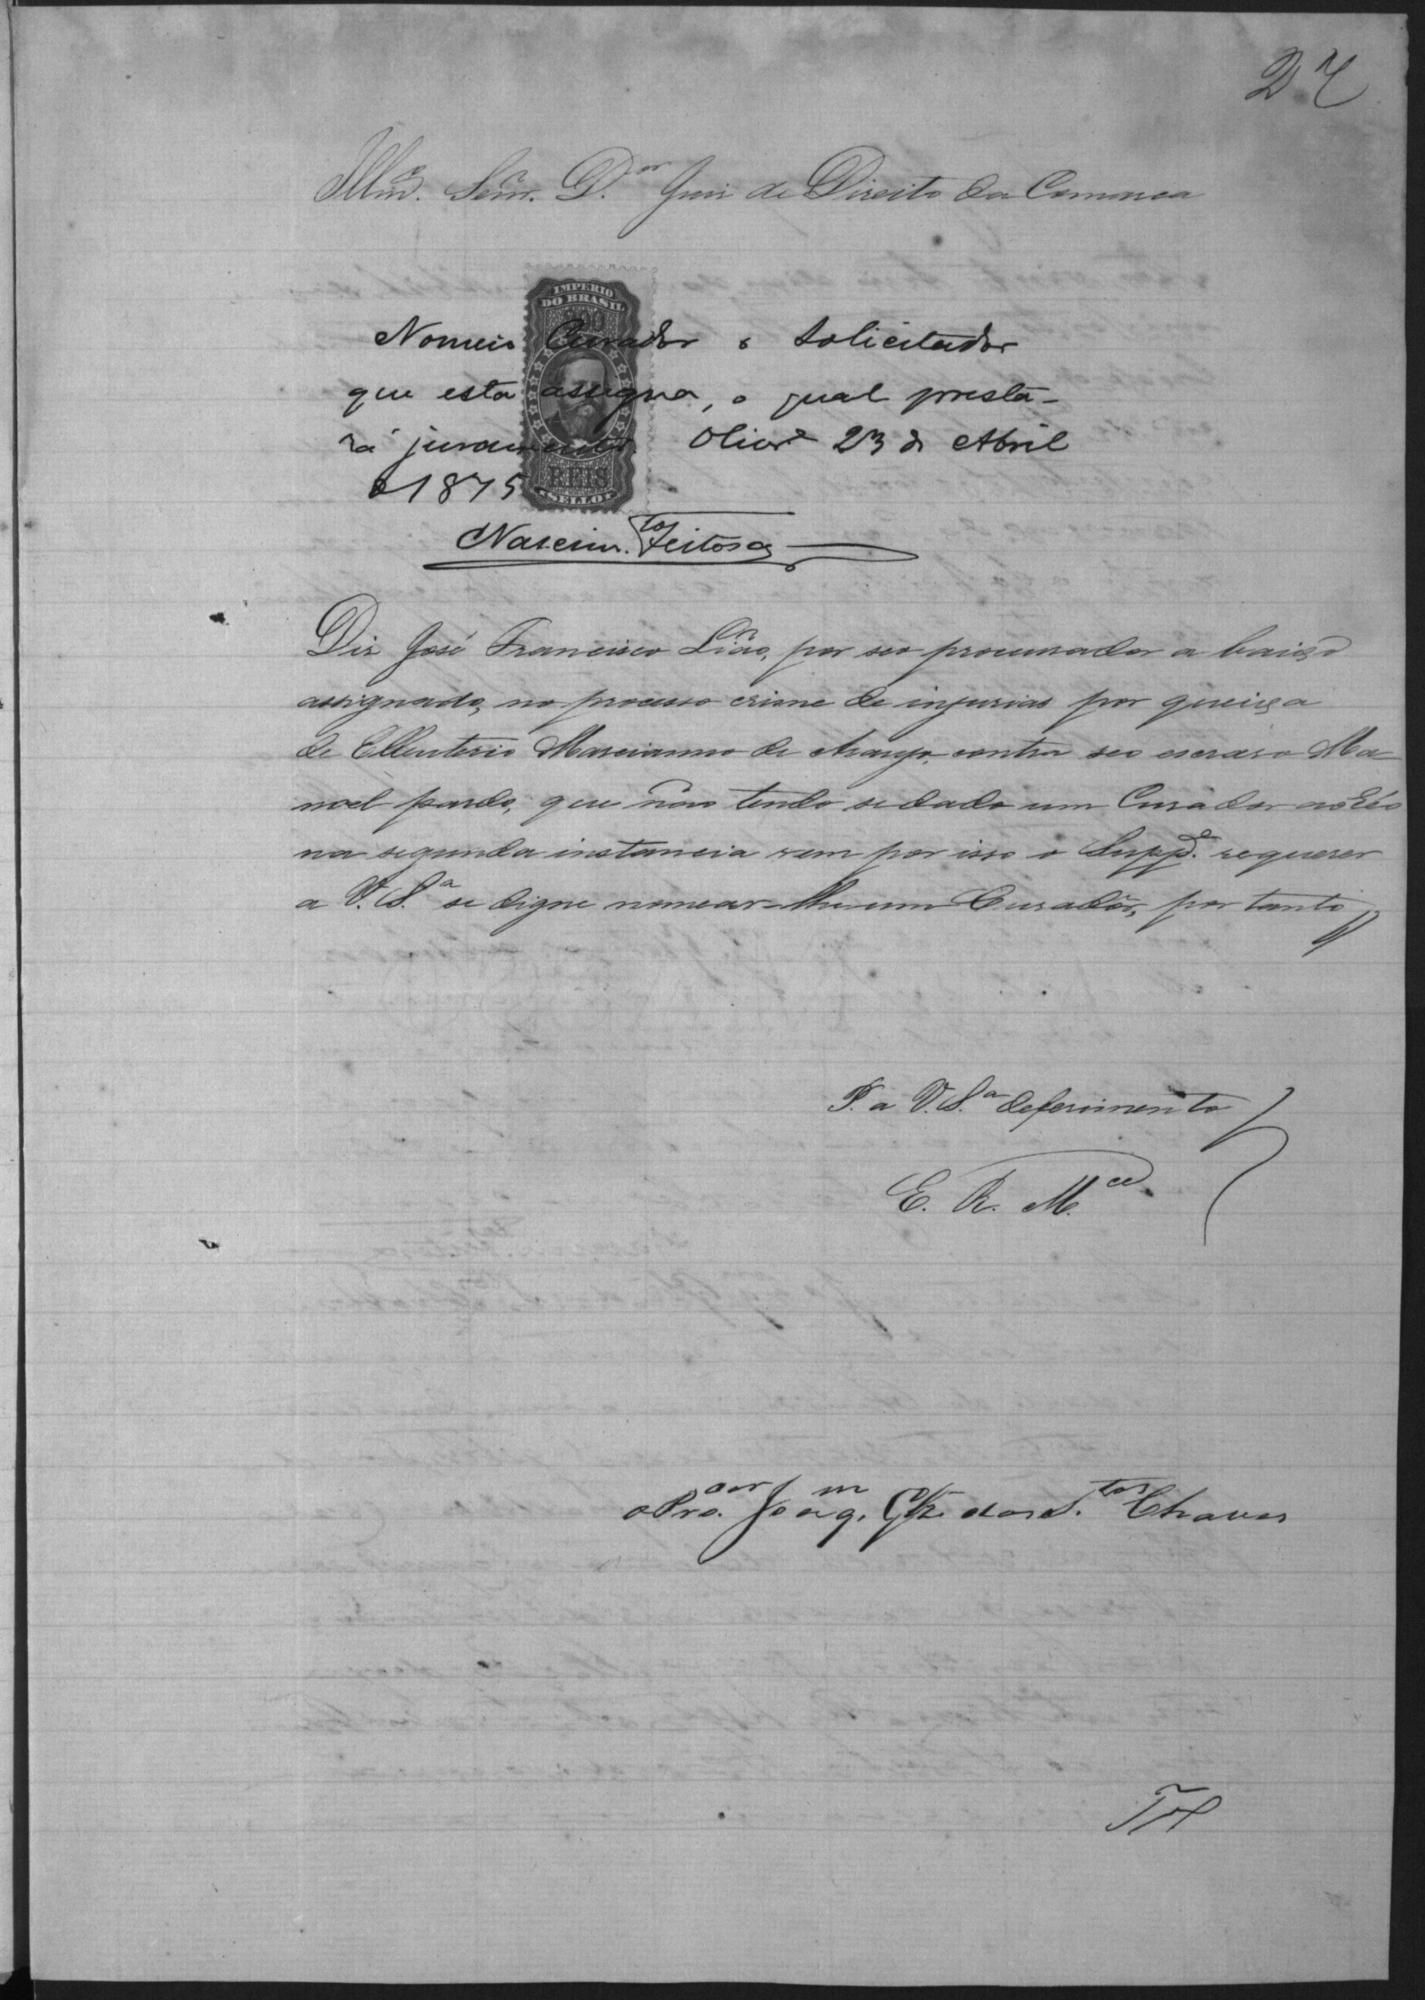 27
Illmo. Senr. Dor Juiz de Direito da Comarca
IMPERIO
DO BRASIL
200
Nomeio Curador o Solicitador
que esta assigna, o qual presta-
rá juramento. Olindª 23 de Abril
de 1875
REIS
SELLO
Nascimto Feitosa
Diz José Francisco Lião, por seo procurador a baixo
assignado, no processo crime de injurias por queixa
de Elleuterio Marcianno de Araujo, contra seo escravo Ma-
noel pardo, que não tendo se dado um Curador ao Réo
na segunda instancia vem por isso o Suppe. requerer
a V. Sª se digne nomear-lhe um Curadôr, por tanto
P. a V. Sª deferimento
E. R. Mce.
o Procor Joaqm. Glz dos Stos Chaves